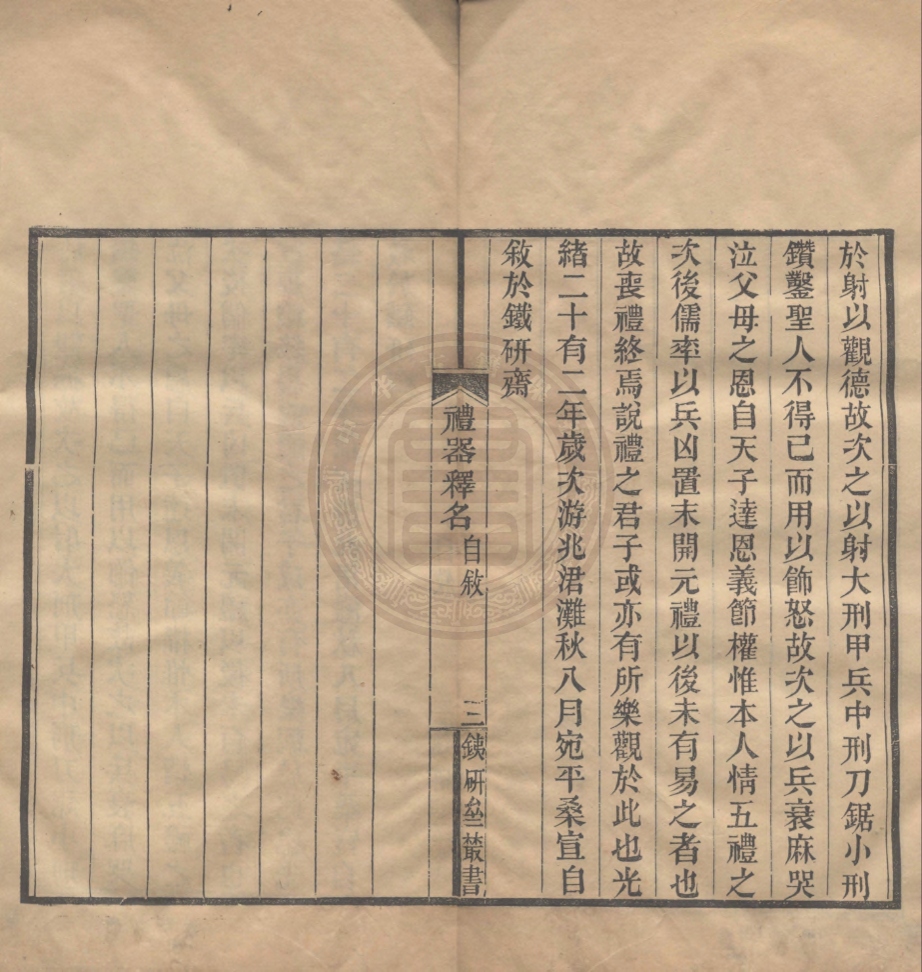 於射以觀德故次之以射大刑甲兵中刑刀鋸小刑
鑽鑿聖人不得已而用以飾怒故次之以兵衰麻哭
泣父母之恩自天子達恩義節權惟本人情五禮之
次後儒率以兵凶置末開元禮以後未有易之者也
故喪禮終焉說禮之君子或亦有所樂觀於此也光
緒二十有二年歲次游兆涒灘秋八月宛平桑宣自
敘於鐵研齋
禮器釋名 自敘 三 銕研垒叢書